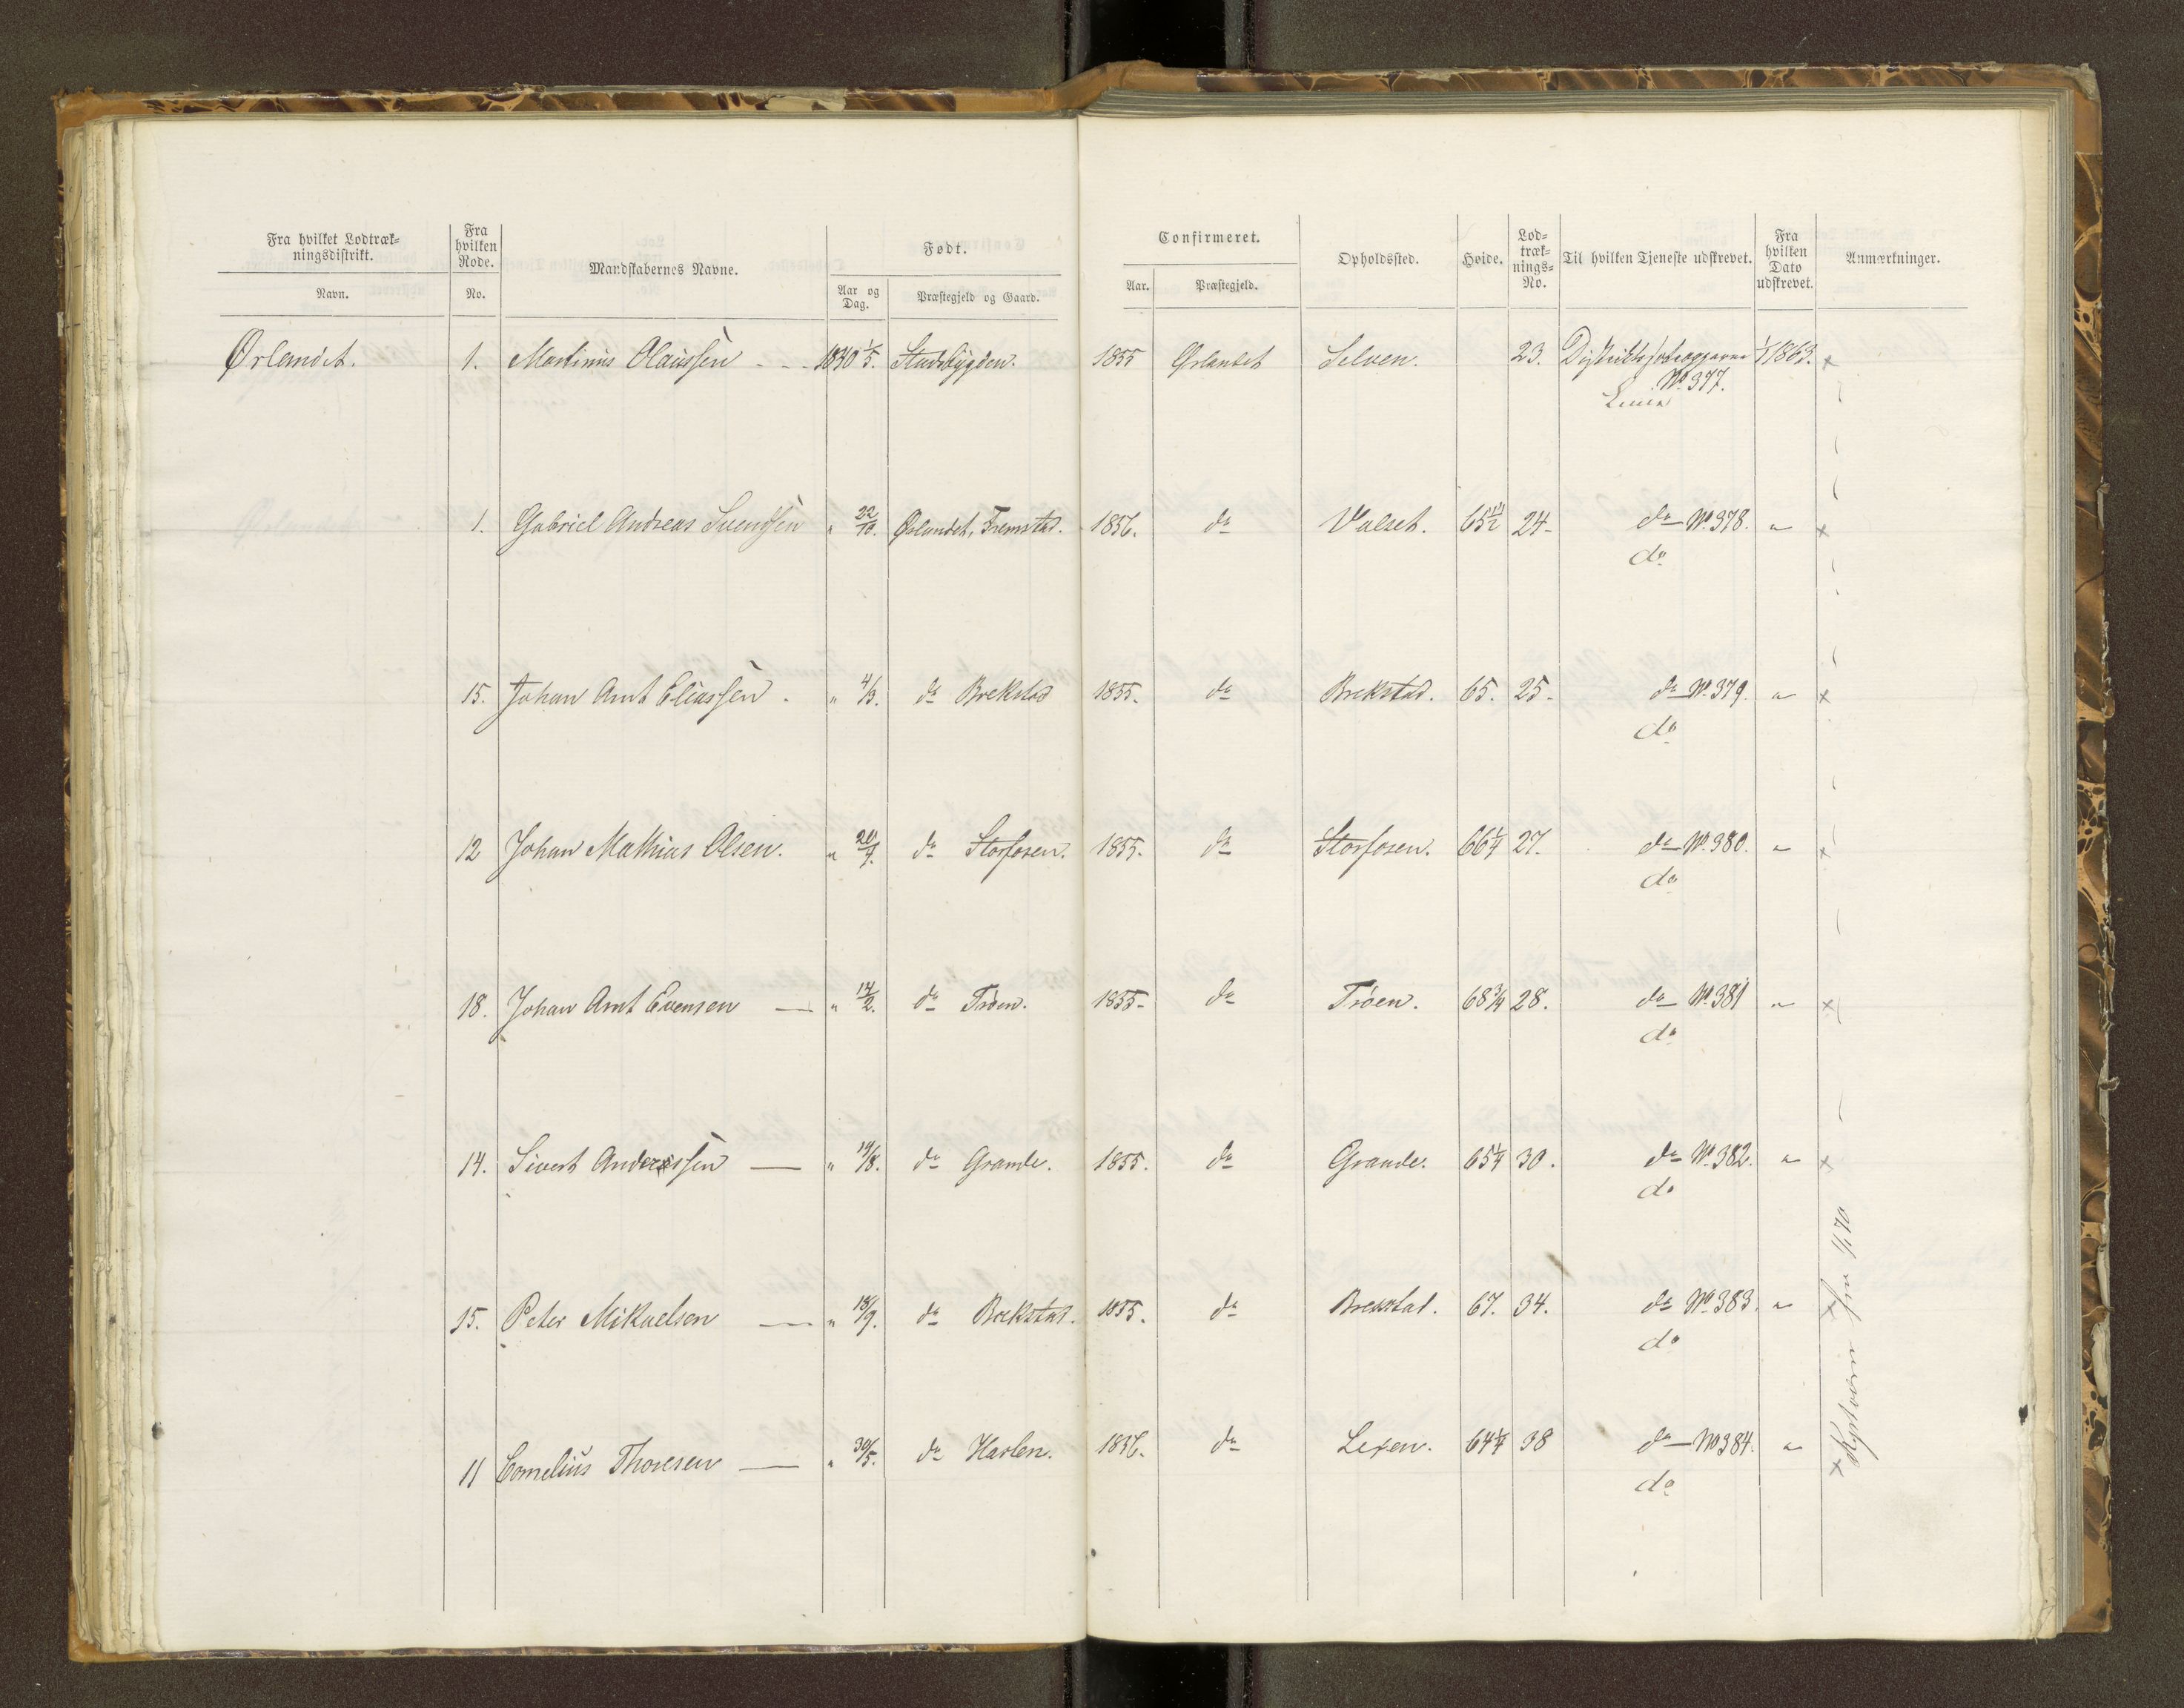 Fra hvilket Lodtræk-
ningsdistrikt.
Navn.
Fra
hvilken
Rode.
No.
Mandskabernes Navne.
Født.
Aar og
Dag.
Præstegjeld og Gaard.
Confirmeret.
Aar.
Præstegjeld.
Opholdssted.
Høide.
Lod-
træk-
nings-
No.
Til hvilken Tjeneste udskrevet.
Fra
hvilken
Dato
udskrevet.
Anmærkninger.
Ørlandet. 1. Martinus Olaussen 1840 1/5. Stadsbygden. 1855 Ørlandet Selven. 23. 1/1 1863. x
No. 377.
1. Gabriel Andreas Svendsen " 22/10. Ørlandet, Fremstad. 1856. do Valset. 65 1/2 24. do No. 378. " x
do
15. Johan Arnt Eliassen. " 4/3. do Brekstad 1855. do Brekstad. 65. 25. do No. 379. " x
do
12 Johan Mathias Olsen. " 20/7. do Storfosen. 1855. do Storfosen. 66 1/4 27. do No. 380. " x
do
18. Johan Arnt Evensen — " 14/2. do Trøen. 1855. do Trøen. 68 3/4 28. do No. 381 " x
do
14. Sivert Anderssen — " 14/8. do Grande. 1855. do Grande. 65 1/4 30. do No. 382. " x
do
15. Peter Mikaelsen — " 18/9. do Brekstad. 1855. do Brekstad. 67. 34. do No. 383. " x
do
11 Cornelius Thoresen — " 30/5. do Harlen. 1856. do Lexen. 64 1/4 38 do No 384. " x
do
Kystværn fra 1/1 70